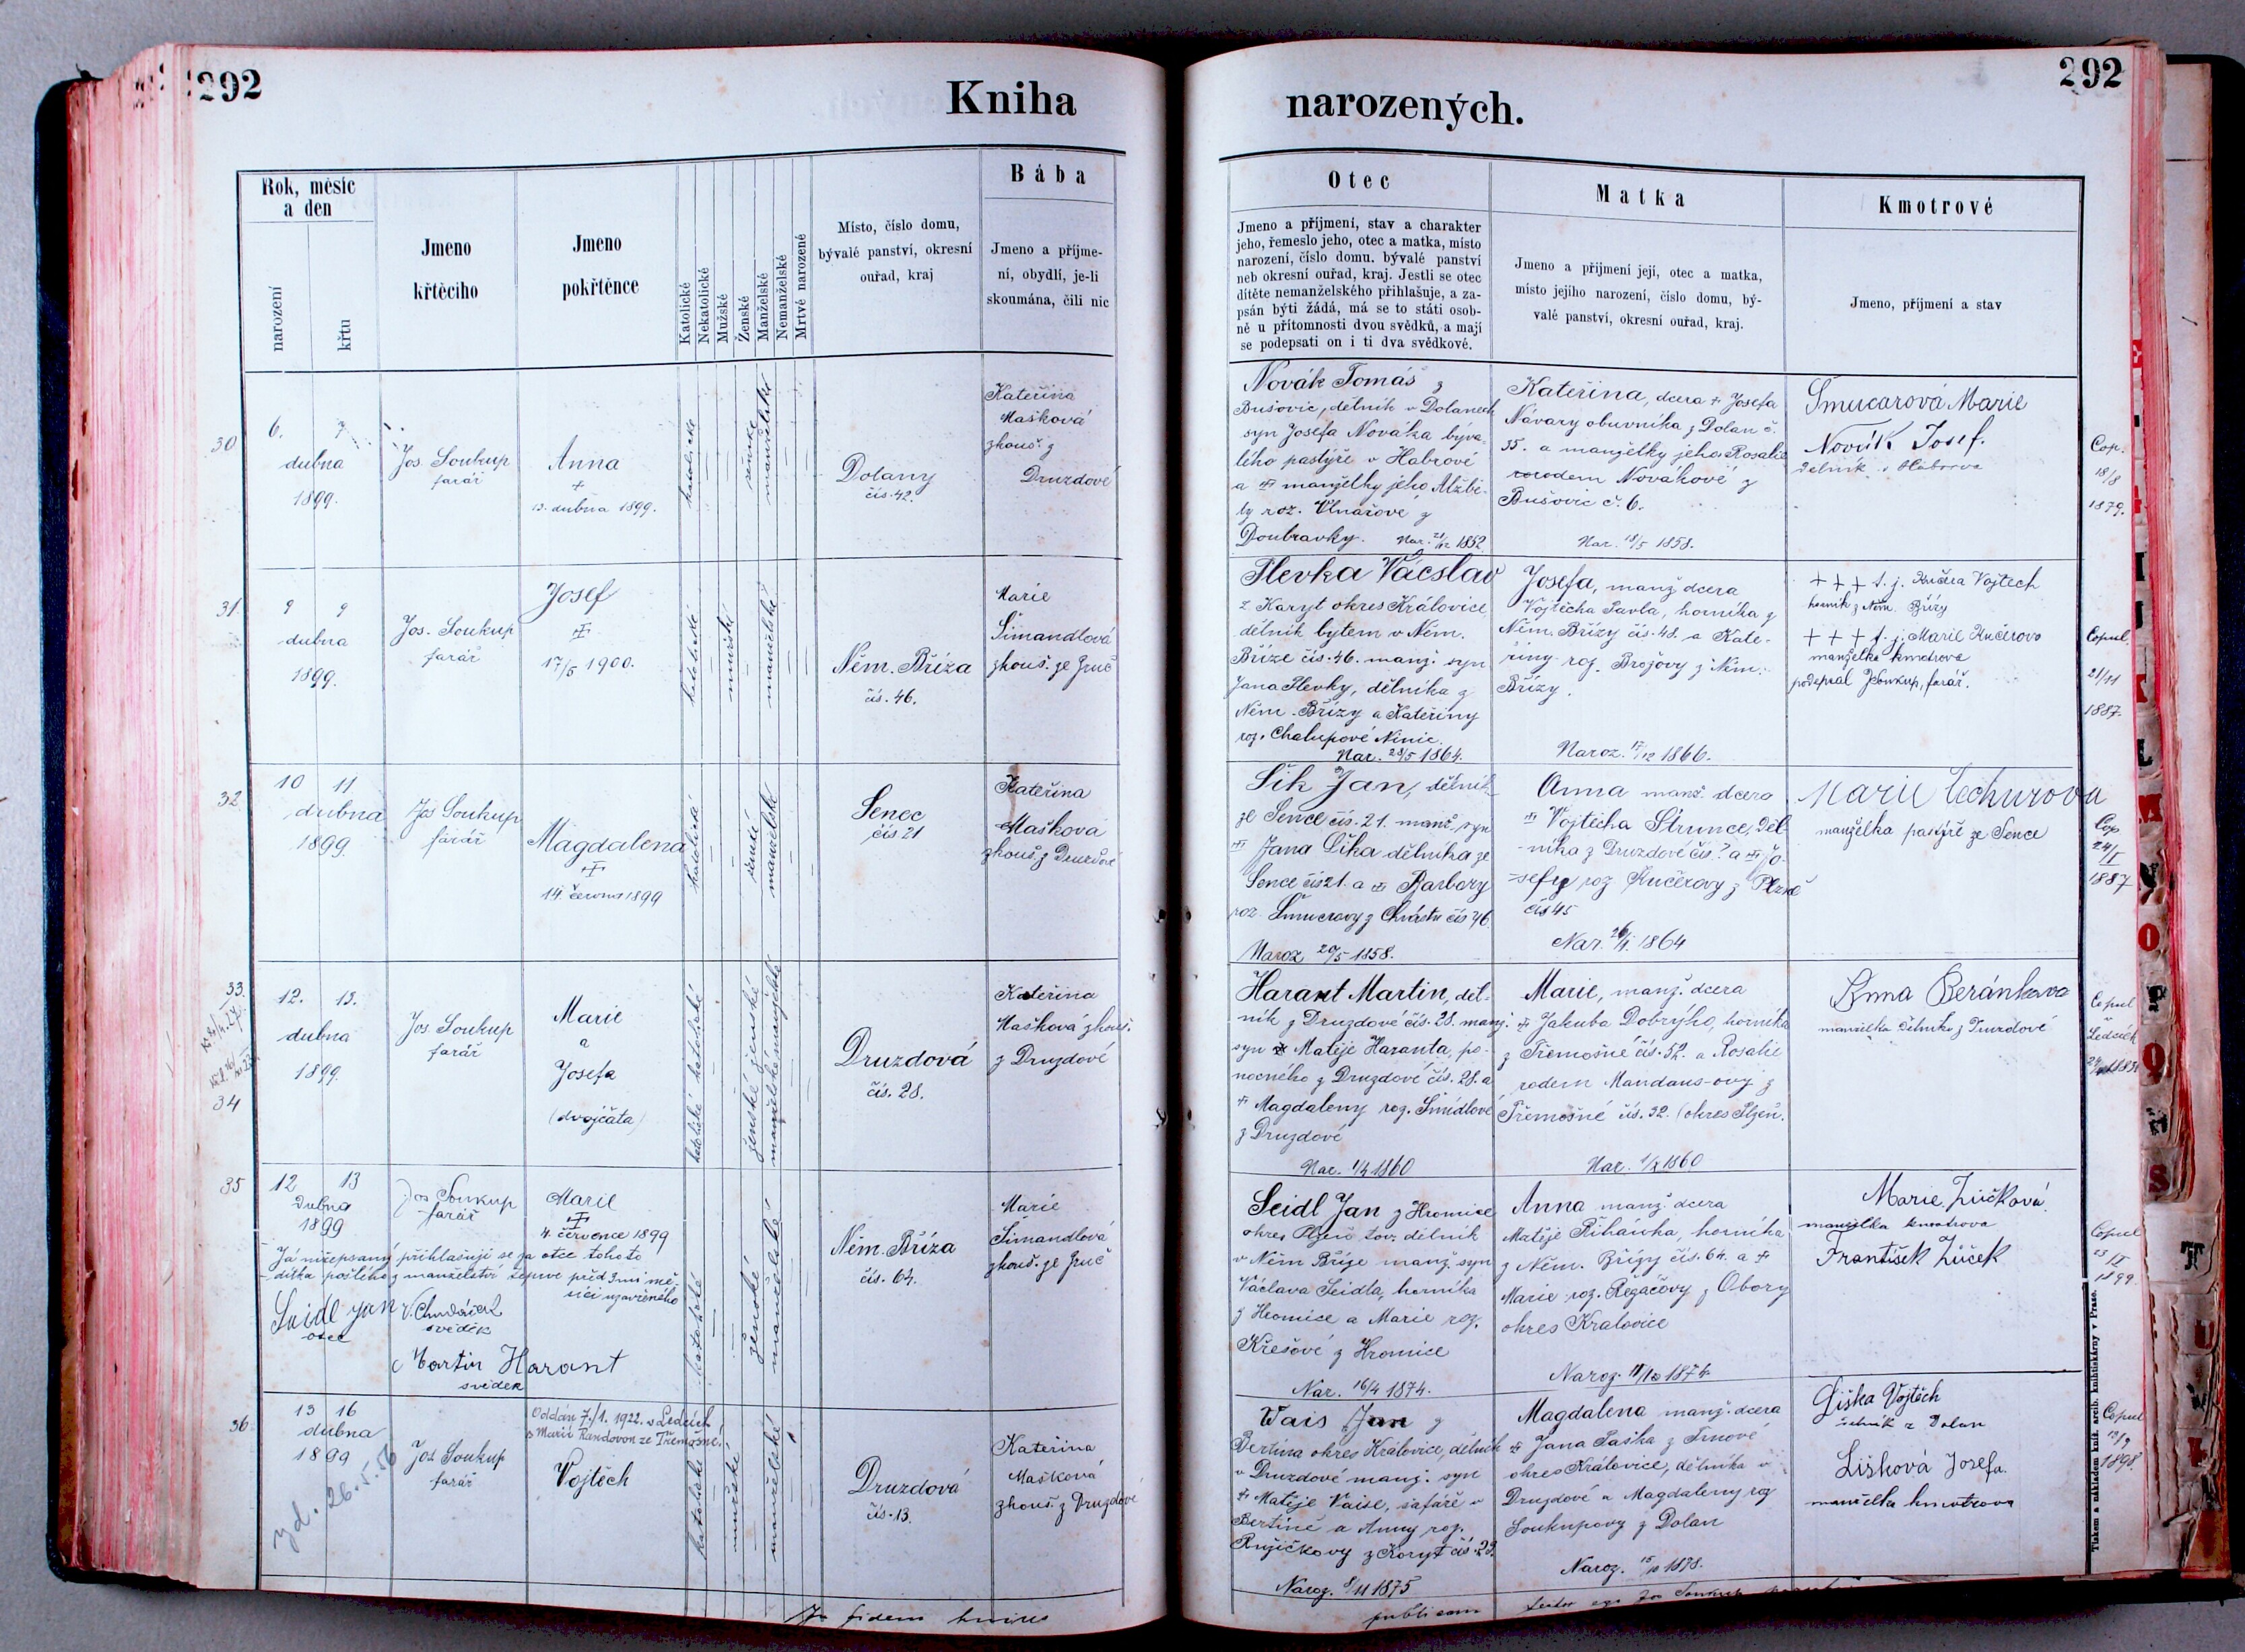 292
Kniha
Rok, měsíc
a den
narození
křtu
Jmeno
křtěcího
Jmeno
pokřtěnce
Katolické
Nekatolické
Mužské
Ženské
Manželské
Nemanželské
Mrtvě narozené
Místo, číslo domu,
bývalé panství, okresní
ouřad, kraj
Bába
Jmeno a příjme-
ní, obydlí, je-li
skoumána, čili nic
30
6. 7
dubna
1899.
Jos. Soukup
farář
Anna
+
13. dubna 1899.
katolické
ženské
manželské
Dolany
čís. 42.
Kateřina
Mašková
zkouš. z
Druzdové
31
9 9
dubna
1899.
Jos. Soukup
farář
Josef
17/5 1900.
katolické
mužské
manželské
Něm. Bříza
čís. 46.
Marie
Šimandlová
zkouš. ze Zruč
32
10 11
dubna
1899.
Jos Soukup
farář
Magdalena
14. června 1899
katolická
ženské
manželské
Senec
čís 21
Kateřina
Mašková
zkouš. z Druzdové
33.
34
12. 13.
dubna
1899.
Jos. Soukup
farář
Marie
a
Josefa
(dvojčata)
katolické katolické
ženské ženské
manželské manželské
Druzdová
čís. 28.
Kateřina
Mašková zkouš.
z Druzdové
35
12 13
dubna
1899
Jos Soukup
farář
Marie
4. července 1899
Já nížepsaný přihlašuji se za otce tohoto
dítka pošlého z manželství teprve před 3mi mě-
síci uzavřeného
Seidl Jan
otec
svědek
Martin Harant
svědek
katolické
ženské
manželské
Něm. Bříza
čís. 64.
Marie
Šimandlová
zkouš. ze Zruč
36
13 16
dubna
1899
Zd. 26.5.56
Jos Soukup
farář
Oddán 7./1. 1922. v Ledcích
s Marií Randovou ze Třemošné.
Vojtěch
katolické
mužské
manželské
Druzdová
čís. 13.
Kateřina
Mašková
zkouš. z Druzdové
292
narozených.
Otec
Jmeno a příjmení, stav a charakter
jeho, řemeslo jeho, otec a matka, místo
narození, číslo domu. bývalé panství
neb okresní ouřad, kraj. Jestli se otec
dítěte nemanželského přihlašuje, a za-
psán býti žádá, má se to státi osob-
ně u přítomnosti dvou svědků, a mají
se podepsati on i ti dva svědkové.
Matka
Jmeno a přijmení její, otec a matka,
místo jejího narození, číslo domu, bý-
valé panství, okresní ouřad, kraj.
Kmotrové
Jmeno, příjmení a stav
Novák Tomáš z
Bušovic, dělník v Dolanech
syn Josefa Nováka býva-
lého pastýře v Habrové
a manželky jeho Alžbě-
ty roz. Vlnařové z
Doubravky. Nar. 21/12 1852
Kateřina, dcera Josefa
Návary obuvníka z Dolan č.
35. a manželky jeho Rosalie
rodem Novákové z
Bušovic č. 6.
Nar. 18/5 1858.
Šmucarová Marie
Novák Josef.
dělník
Cop.
18/8
1879.
Plevka Václav
z Karyt okres Královice,
dělník bytem v Něm.
Bříze čís. 46. manž. syn
Jana Plevky, dělníka z
Něm. Břízy a Kateřiny
roz. Chalupové
Nar. 28/5 1864.
Josefa, manž. dcera
Vojtěcha Pavla, horníka z
Něm. Břízy čís. 48. a Kate-
řiny roz. Brožovy z Něm.
Břízy.
Naroz. 17/12 1866.
+ + + t. j. Kučera Vojtěch
horník z Něm. Břízy
+ + + t. j. Marie Kučerova
manželka kmotrova
podepsal JSoukup, farář.
Copul.
21/11
1887.
Šik Jan, dělník
ze Sence čís. 21. manž. syn
Jana Šika dělníka ze
Sence čís 21. a Barbory
roz. Šmucrovy z Chrástu čís 46.
Naroz 20/5 1858.
Anna manž. dcera
Vojtěcha Štrunce, děl-
níka z Druzdové čís. 7 a Jo-
sefy roz Kučerovy z Plzně
čís 45
Nar. 26/1. 1864
Marie Čechurova
manželka pastýře ze Sence
Cop
24/I
1887
Harant Martin, děl-
ník z Druzdové čís. 28. manž.
syn Matěje Haranta, po-
nocného z Druzdové čís. 28. a
Magdaleny roz. Šmídlové
z Druzdové
Nar. 1/4 1860
Marie, manž. dcera
Jakuba Dobrýho, horníka
z Třemošné čís. 52. a Rosalie
rodem Mandaus-ovy z
Třemošné čís. 32. (okres Plzeň.
Anna Beránkova
manželka dělníka z Druzdové
Copul
Seidl Jan z Hromice
okres Plzeň tov. dělník
v Něm Bříze manž. syn
Václava Seidla, horníka
z Hromice a Marie roz.
Křešové z Hromice
Nar. 16/4 1874.
Anna manž. dcera
Matěje Piháňka, horníka
z Něm. Břízy čís. 64. a
Marie roz. Řezáčovy z Obory
okres Kralovice
Naroz. 11/10 1874
Marie Žúčková.
manželka kmotrova
František Žúček
Copul
23
II
1899
Wais Jan z
Bertína okres Královice, dělník
v Druzdové manž. syn
Matěje Vaise, šafáře v
Bertíně a Anny roz.
Ružičkovy z Koryt čís. 23.
Naroz. 8/11 1875
Magdalena manž. dcera
Jana Paška z Trnové
okres Královice, dělníka v
Druzdové a Magdaleny roz
Soukupovy z Dolan
Naroz. 15/10 1878.
Liška Vojtěch
z Dolan
Lišková Josefa.
manželka kmotrova
Copul
13/9
1898.
Tiskem a nákladem kníž. arcib. knihtiskárny v Praze.